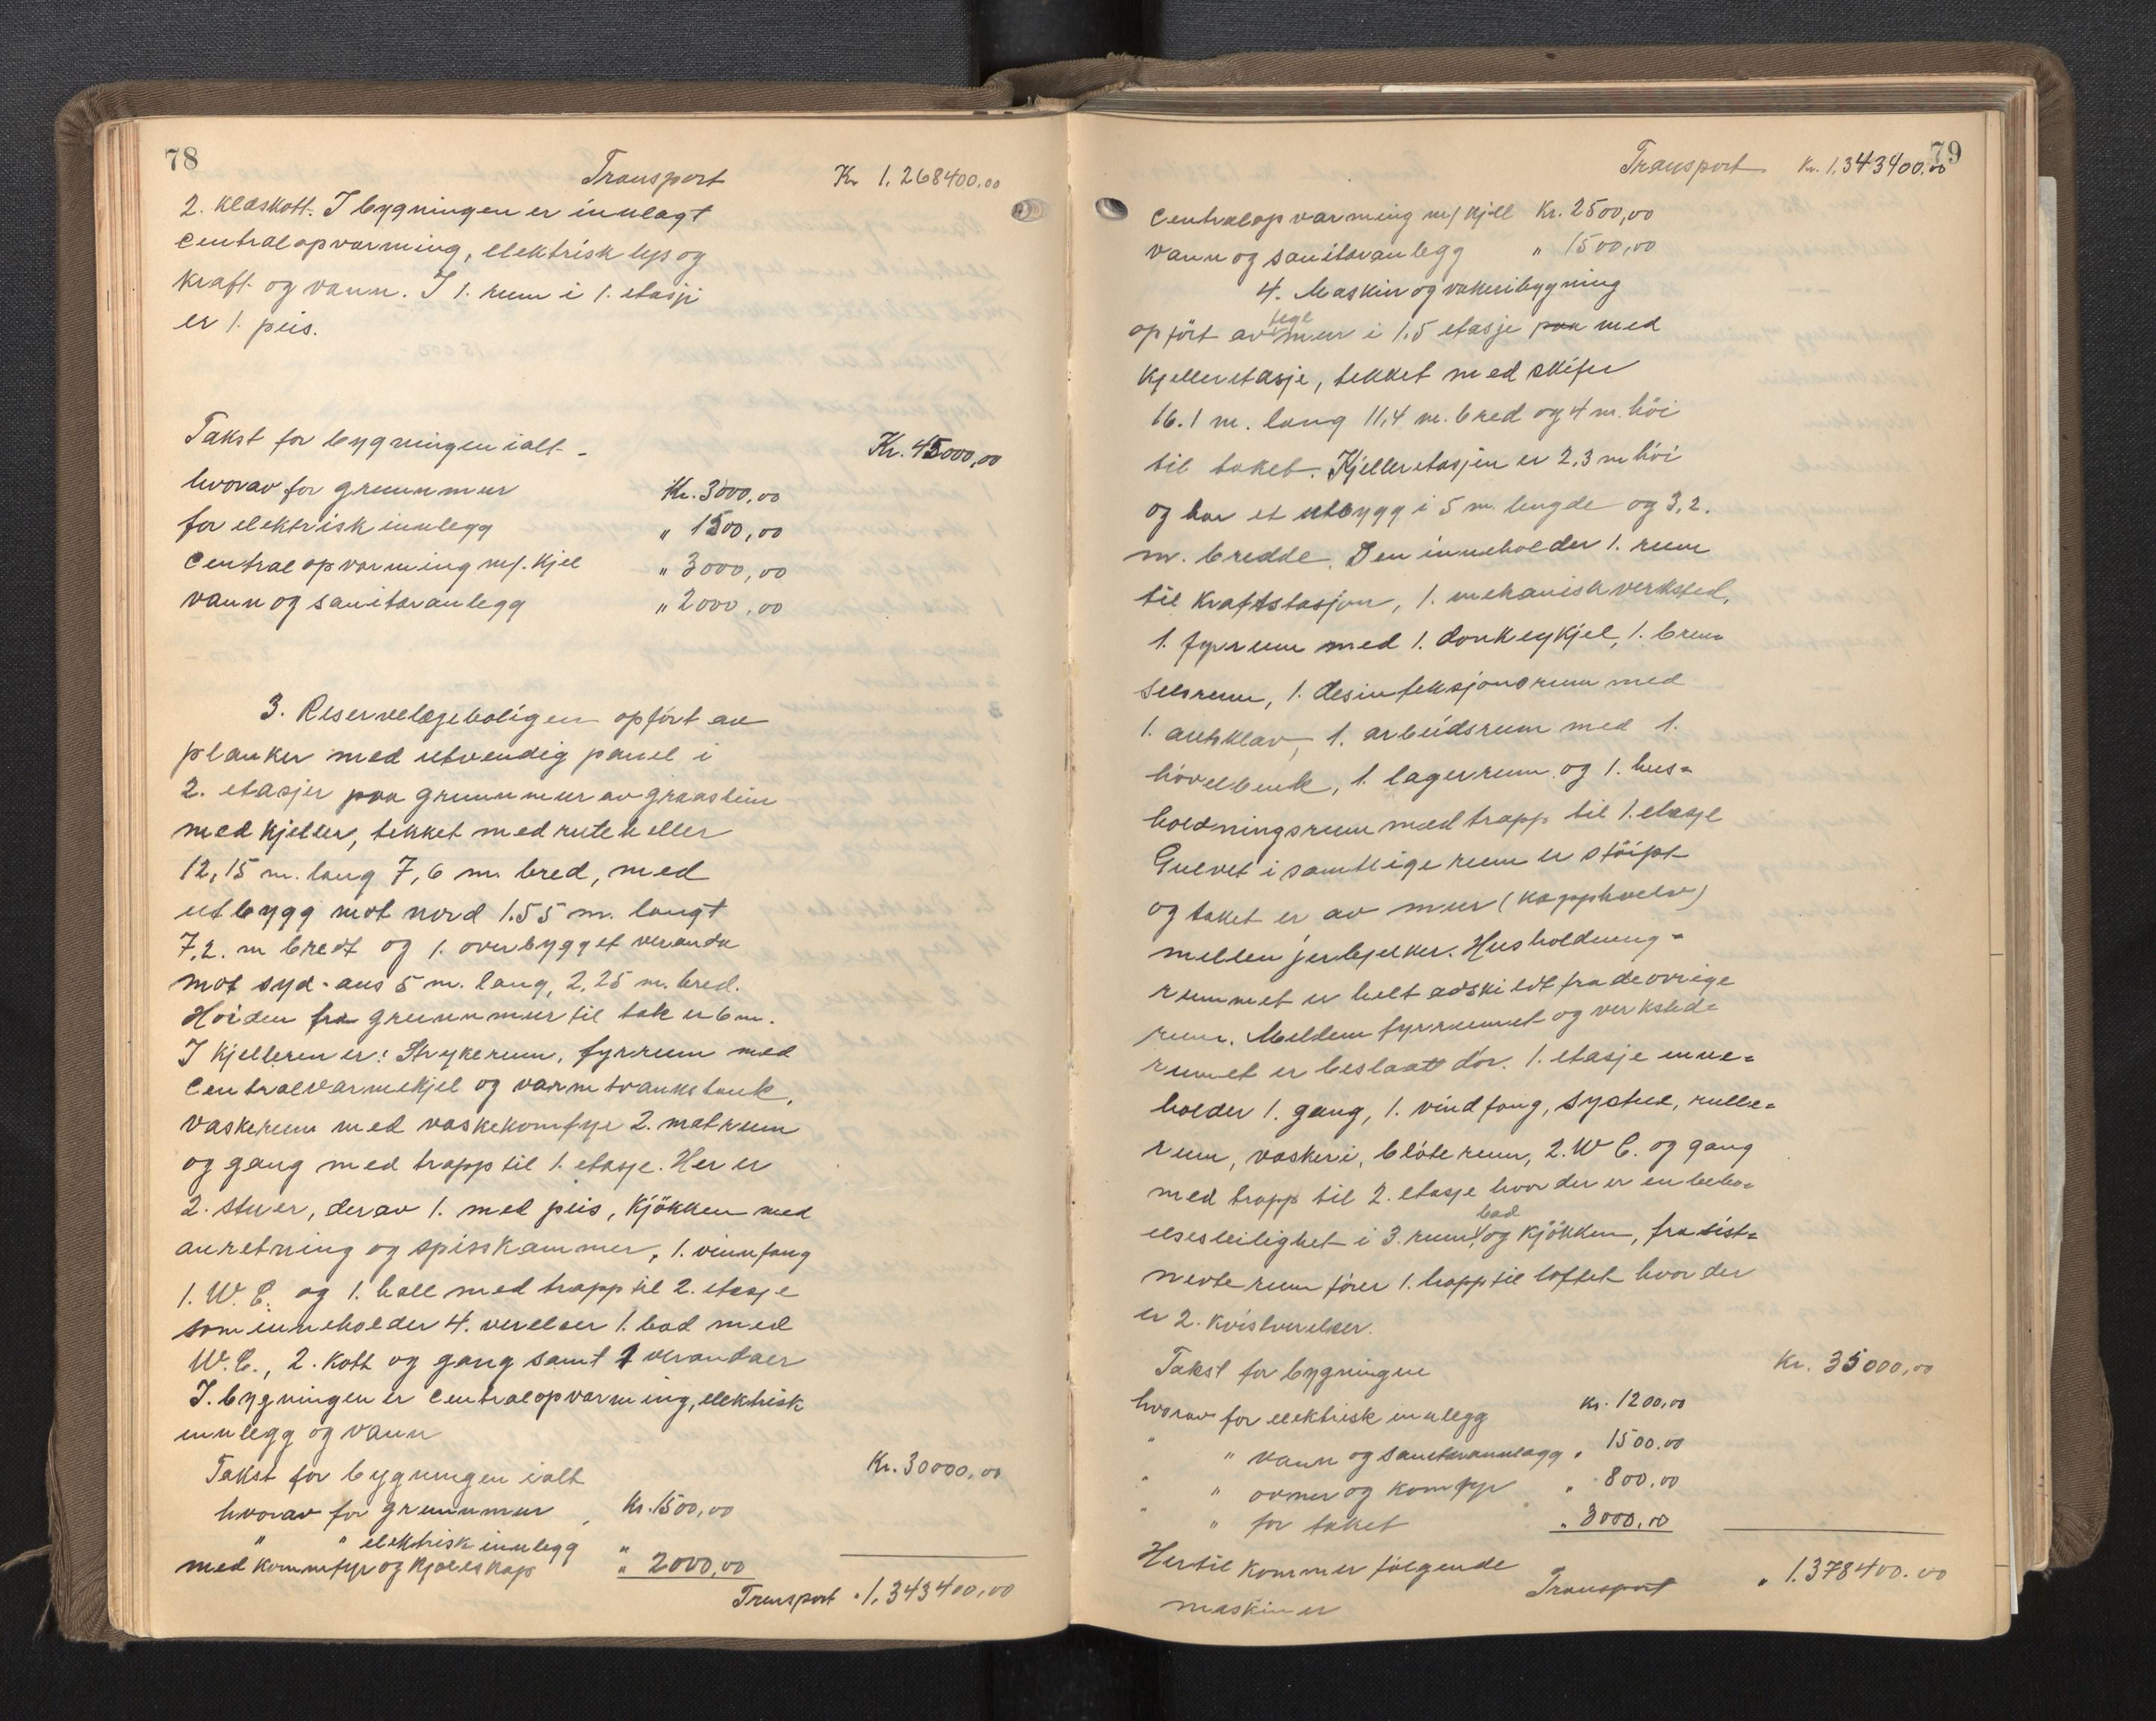 78
Transport Kr 1.268400,00
2. klæskott. I bygningen er innlagt
centralopvarming, elektrisk lys og
kraft og vann. I 1. rum i 1. etasje
er 1. peis.
Takst for bygningen ialt - Kr. 45000,00
hvorav for grunnmur Kr. 3000,00
for elektrisk innlegg " 1500,00
centralopvarming m/. kjel " 3000,00
vann og sanitæranlegg " 2000,00
3. Reservelægeboligen opført av
planker med utvendig panel i
2. etasjer paa grunnmur av graastein
med kjeller, tekket med ruteheller
12,15 m. lang 7,6 m. bred, med
utbygg mot nord 1.55 m. langt
7,2. m bredt og 1. overbygget veranda
mot syd-aus 5 m. lang, 2,25 m. bred.
Høiden fra grunnmur til tak er 6 m.
I kjelleren er: Strykerum, fyrrum med
centralvarmekjel og varmtvannstank,
vaskerum med vaskekomfyr 2. matrum
og gang med trapp til 1. etasje. Her er
2. stuer, derav 1. med peis, kjøkken med
anretning og spisskammer, 1. vinnfang
1. W.C. og 1. hall med trapp til 2. etasje
som inneholder 4. værelser 1. bad med
W.C., 2. kott og gang samt 1 verandaer
I. bygningen er centralopvarming, elektrisk
innlegg og vann
Takst for bygningen ialt Kr. 30000,00
hvorav for grunnmur Kr. 1500,00
" " elektrisk innlegg "
med kommfyr og kjøleskap " 2000,00
Transport " 1,343400,00
79
Transport Kr. 1,343400,00
centralopvarming m/ kjell Kr. 2500,00
vann og sanitæranlegg " 1500,00
4. Maskin og vaskeribygning
opført av tegl mur i 1,5 etasje paa med
kjelleretasje, tekket med skifer
16.1 m. lang 11,4 m. bred og 4 m. høi
til taket. Kjelleretasjen er 2,3 m høi
og har et utbygg i 5 m. lengde og 3,2.
m. bredde. Den inneholder 1. rum
til kraftstasjon, 1. mekanisk verksted,
1. fyrrum med 1. donkeykjel, 1. bren-
selsrum, 1. desinfeksjonsrum med
1. autoklav, 1. arbeidsrum med 1.
høvelbenk, 1. lagerrum og 1. hus-
holdningsrum med trapp til 1. etasje
Gulvet i samtlige rum er støipt
og taket er av mur (kapphvelv)
mellem jernbjelker. Husholdning-
rummet er helt adskildt fra de øvrige
rum. Mellem fyrrummet og verksted-
rumet er beslaatt dør. 1. etasje inne-
holder 1. gang, 1. vindfang, systue, rulle-
rum, vaskeri, bløterum, 2. W C. og gang
med trapp til 2. etasje hvor der er en bebo-
elsesleilighet i 3. rum, bad og kjøkken, fra sist-
nevte rum fører 1. trapp til loftet hvor der
er 2. kvistværelser.
Takst for bygningen Kr. 35000,00
hvorav for elektrisk innlegg Kr. 1200,00
" " vann og sanitæranlægg " 1500.00
" " ovner og komfyr " 800,00
" " for taket " 3000,00
Hertil kommer følgende
Transport " 1.378400.00
maskiner